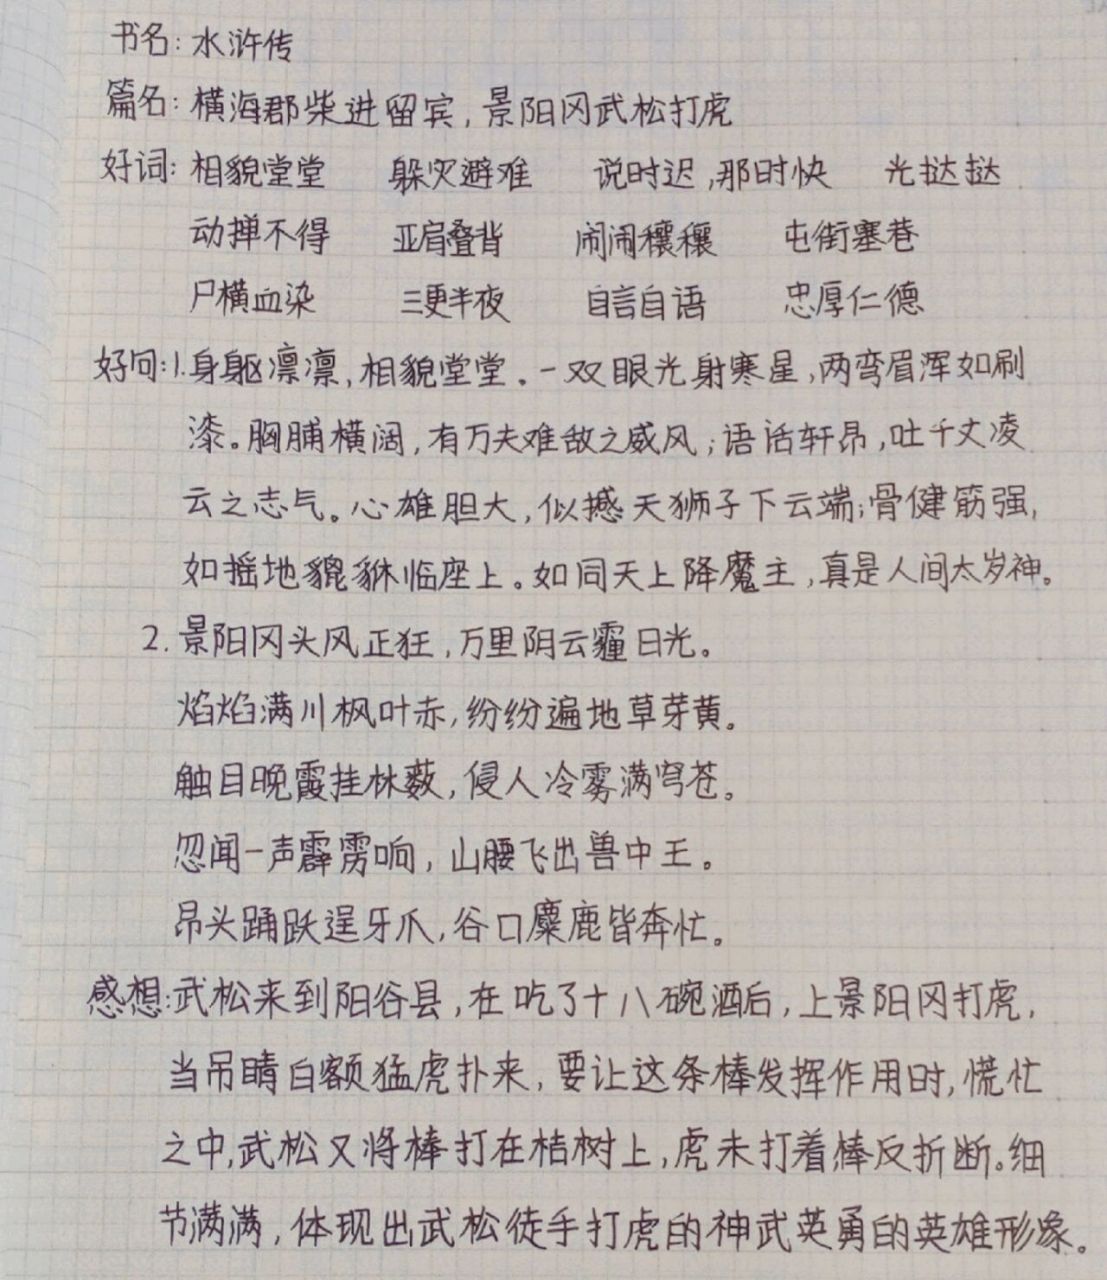 书名：水浒传
篇名：横海郡柴进留宾，景阳冈武松打虎
好词：相貌堂堂 躲灾避难 说时迟，那时快 光挞挞
动掸不得 亚肩叠背 闹闹穰穰 屯街塞巷
尸横血染 三更半夜 自言自语 忠厚仁德
好句：1.身躯凛凛，相貌堂堂。一双眼光射寒星，两弯眉浑如刷
漆。胸脯横阔，有万夫难敌之威风；语话轩昂，吐千丈凌
云之志气。心雄胆大，似撼天狮子下云端；骨健筋强，
如摇地貔貅临座上。如同天上降魔主，真是人间太岁神。
2.景阳冈头风正狂，万里阴云霾日光。
焰焰满川枫叶赤，纷纷遍地草芽黄。
触目晚霞挂林薮，侵人冷雾满穹苍。
忽闻一声霹雳响，山腰飞出兽中王。
昂头踊跃逞牙爪，谷口麋鹿皆奔忙。
感想：武松来到阳谷县，在吃了十八碗酒后，上景阳冈打虎，
当吊睛白额猛虎扑来，要让这条棒发挥作用时，慌忙
之中，武松又将棒打在桔树上，虎未打着棒反折断。细
节满满，体现出武松徒手打虎的神武英勇的英雄形象。